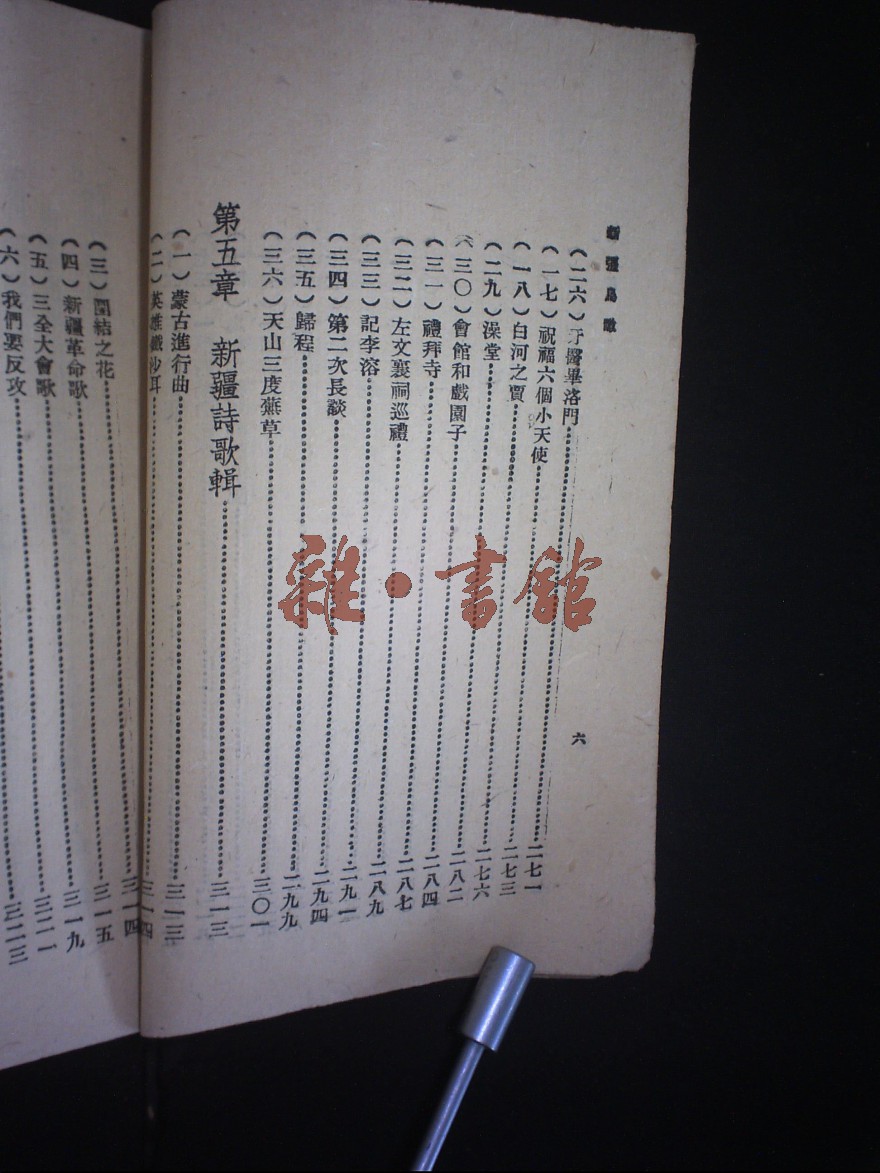 新疆鳥瞰
六
(二六)牙醫畢洛門 二七一
(一七)祝福六個小天使 二七三
(一八)白河之賈 二七六
(二九)澡堂 二八二
(三〇)會館和戲園子 二八四
(三一)禮拜寺 二八七
(三二)左文襄祠巡禮 二八九
(三三)記李溶 二九一
(三四)第二次長談 二九四
(三五)歸程 二九九
(三六)天山三度蕪草 三〇一
第五章 新疆詩歌輯 三一三
(一)蒙古進行曲 三一三
(二)英雄鐵沙耳 三一四
(三)團結之花 三一四
(四)新疆革命歌 三一五
(五)三全大會歌 三一九
(六)我們要反攻 三二一
三二三